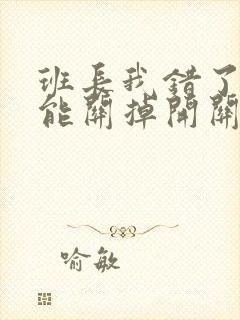 班長我錯了
能關掉開關
喻敏